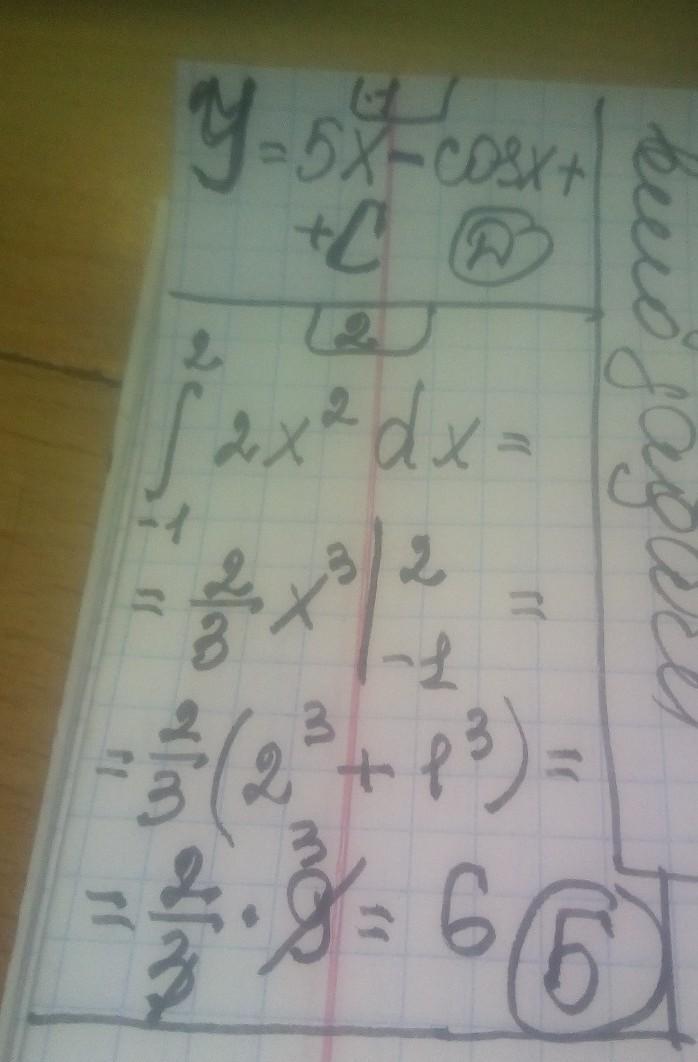 1
y = 5x - cosx +
+ C Д
2
∫₋₁² 2x² dx =
= 2/3 x³ |₋₁² =
= 2/3 (2³ + 1³) =
= 2/3 · 9 3 = 6 Б